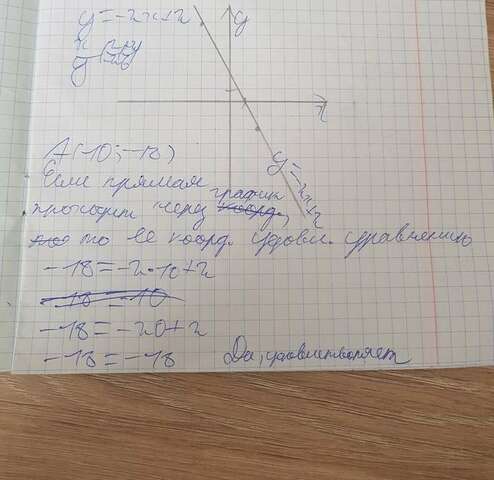 y=-2x+2
y
x
y=-2x+2
A(10;-18)
Если прямая график
проходит через коорд.,
то ее коорд. удовл. уравнению
-18=-2·10+2
-18=-10
-18=-20+2
-18=-18 Да, удовлетворяет